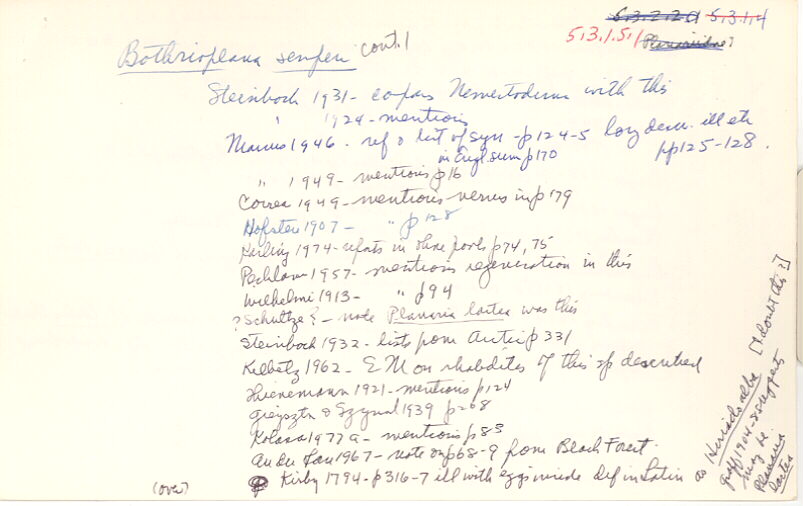 5.3.1.4
5.3.1.5.1
Bothrioplana semperi cont.
Steinbock 1931 - compares Nemertoderma with this
" 1924 - mentions
Marcus 1946 - ref & list of syn - p124-5 long descr. ill etc pp125-128.
in Engl sum p170
" 1949 - mentions p16
Correa 1949 - mentions nerves in p179
Hofsten 1907 - " p128
Karling 1974 - reports in shore pools p74, 75
Pechlaner 1957 - mentions regeneration in this
Wilhelmi 1913 - " p94
? Schultze ? - note Planaria lactea was this
Steinbock 1932 - lists from p331
1962 - EM on rhabdites of this sp described
Thienemann 1921 - mentions p124
Gieysztor & 1939 p268
Kolasa 1977a - mentions p83
an der Lan 1967 - note on p68-9 from Black Forest.
Kirby 1794 - p316-7 ill with eggs inside def in Latin as Hirudo alba [I doubt this?]
Graff 1904-5 suggests
may be
Planaria
lactea
(over)